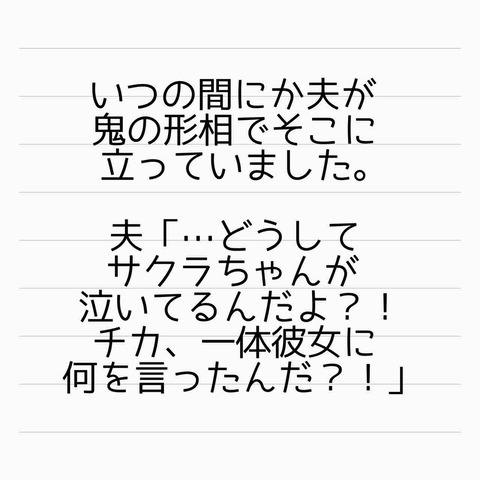 いつの間にか夫が
鬼の形相でそこに
立っていました。
夫「…どうして
サクラちゃんが
泣いてるんだよ？！
チカ、一体彼女に
何を言ったんだ？！」